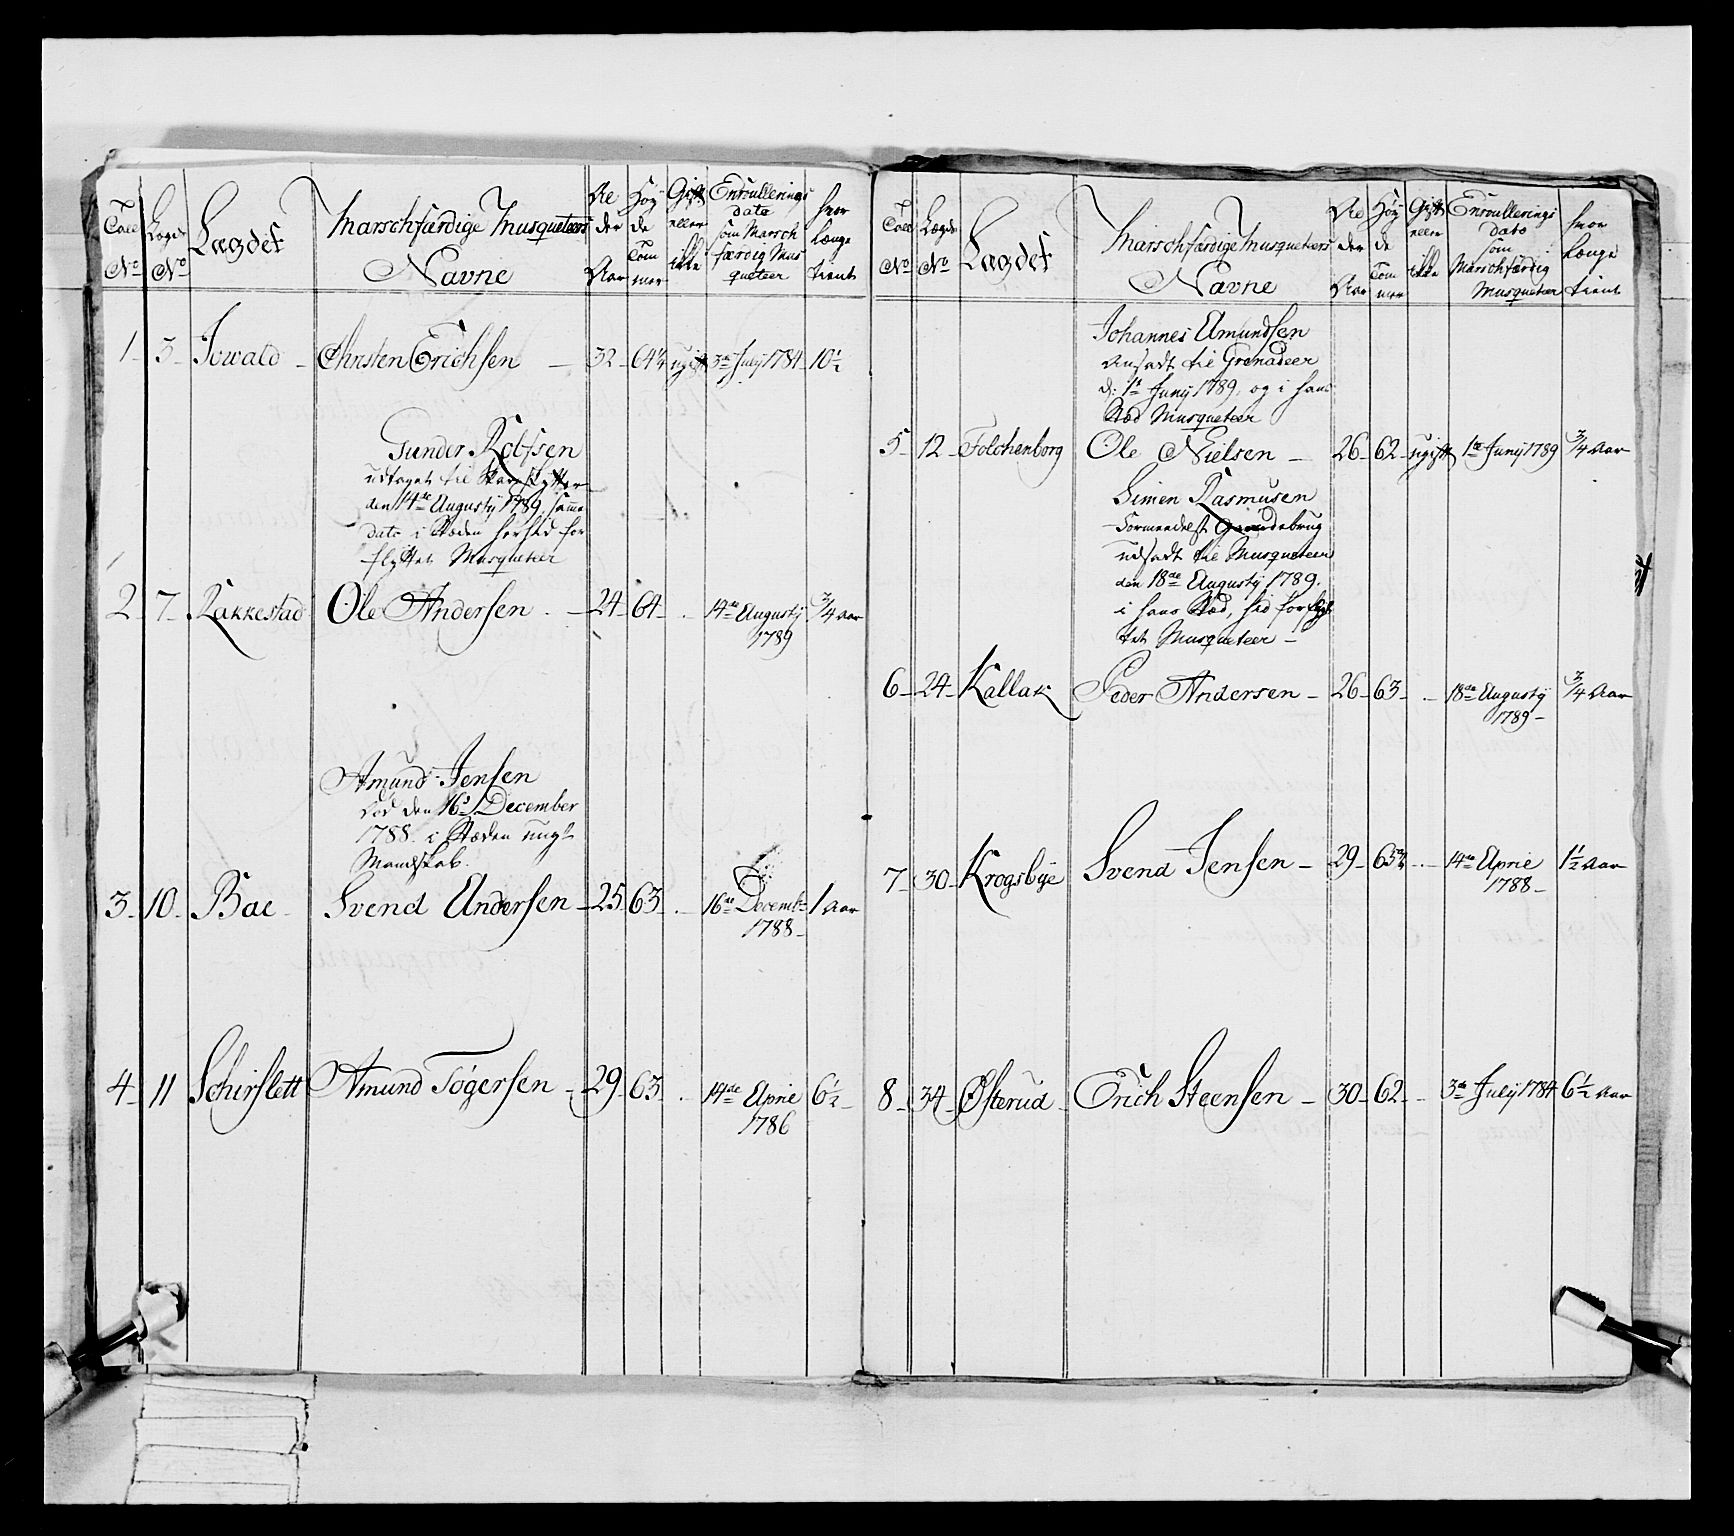 Tall No
Lægds No
Lægdet
Marschfærdige Musqueteers Navne
Al der Aar
Høy de Tom mer
Gift eller ikke
Enroullerings dato som Marsch færdig Mus queteer
hvor længe tient
1 - 3 - Iowald - Christen Erichsen - 32 - 64 1/4 ugift 3de July 1784 - 10 1/2
Gunder Rolfsen
udtaget til Skarpskytter
den 14de Augusty 1789, samme
dato i Stæden herfted for
flyttet Musqueteer
2 - 7 - Rakkestad Ole Andersen - 24 - 64 - . 14de Augusty 1789 3/4 Aar
Amund Jensen
død den 16d December
1788. i Stæden ungt
Mandskab.
3 - 10 - Bae - Svend Andersen - 25 - 63 - . 16de Decemb: 1788 - 1 Aar
4 - 11 Schirslett Amund Tøgersen - 29 - 63 - . 14de Aprie 1786 6 1/2 -
Tall No
Lægds No
Lægdet
Marschfærdige Musqueteers Navne
Al der Aar
Høy de Tom mer
Gift eller ikke
Enroullerings dato som Marschfærdig Musqueteer
hvor længe tient
Johannes Amundsen
Ansadt til Grenadeer
d: 1te Juny 1789, og i hans
Stæd Musqueteer
5 - 12 - Folchenborg Ole Nielsen - 26 - 62 - ugift 1te Juny 1789 3/4 Aar
Simen Rasmusen
formedelst Gaardebrug
udsadt til Musqueteer
den 18de Augusty 1789.
i hans Stæd, hid forflyt
tet Musqueteer -
6 - 24 - Kallak Peder Andersen - 26 - 63 - . 18de Augusty 1789 - 3/4 Aar
7 - 30 - Krogsbye Svend Jensen - 29 - 63 3/4 . - 14de Aprie 1788 - 1 1/2 Aar
8 - 34 - Østerud - Erich Steensen - 30 - 62 - - 3de July 1784 6 1/2 Aar